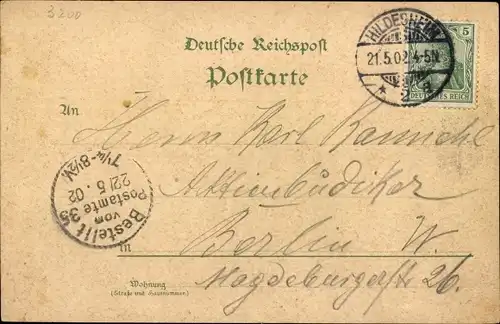 3200
Deutsche Reichspost
Postkarte
HILDESHEIM
21.5.02. 4-5N.
* 2 a
5
DEUTSCHES REICH
An
Herrn Karl
Aktienbudiker
Bestellt
vom
Postamte 35
22/5.02
7¼-8½V.
in
Berlin W.
Wohnung
(Straße und Hausnummer)
Magdeburgerstr 26.